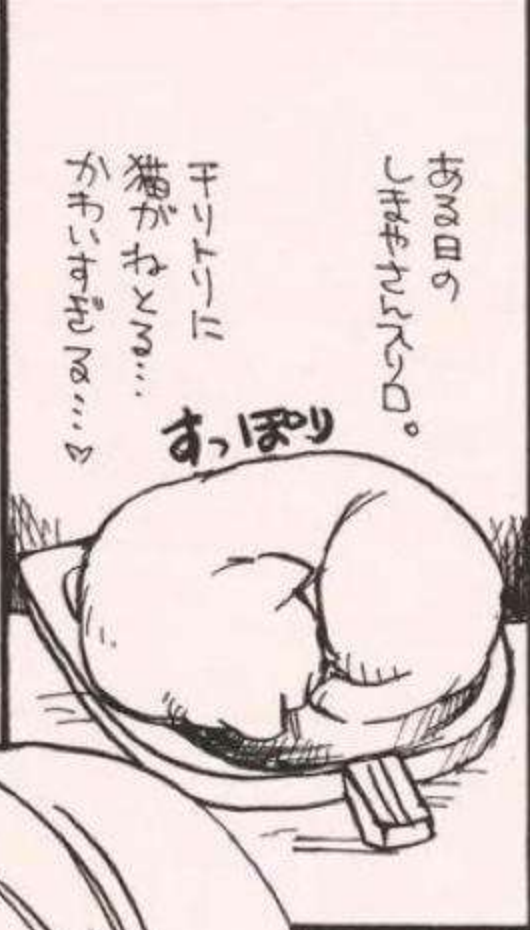 ある日の
しまやさん入り口。
チリトリに
猫がねとる…
かわいすぎる…♡
すっぽり